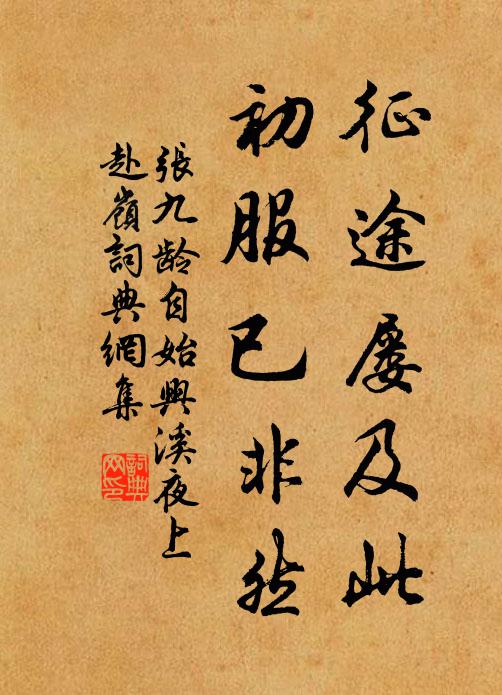 征途屡及此
初服已非然
張九龄自始興溪夜上
赴嶺詞典網集
詞典
网印